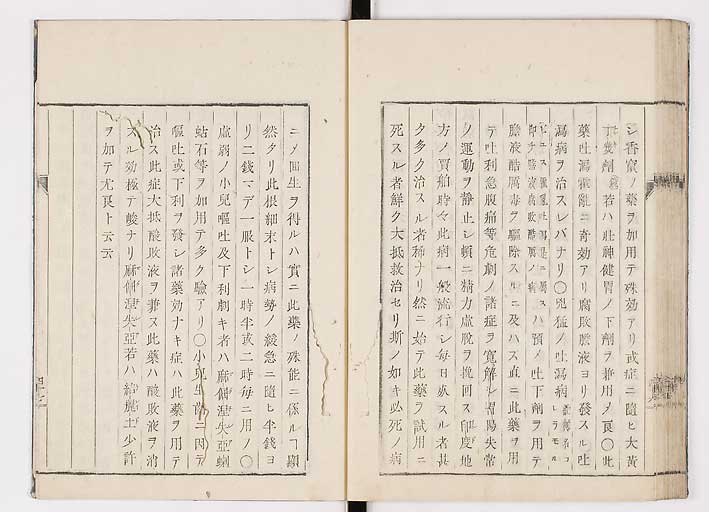 シ香竄ノ藥ヲ加用テ殊効アリ或症ニ隨ヒ大黄
剤若ハ壯神健胃ノ下劑ヲ兼用メ良〇此
藥吐瀉霍亂ニ奇効アリ腐敗膽液ヨリ發スル吐
瀉病ヲ治スレバナリ〇兇猛ノ吐瀉病
預メ吐下劑ヲ用テ
膽液酷厲毒ヲ驅除スルニ及ハス直ニ此藥ヲ用
テ吐利急腹痛等危劇ノ諸症ヲ寛解シ胃腸失常
ノ運動ヲ靜止シ頓ニ精力虛脫ヲ挽回ス印度地
方ノ買舶時々此病一般流行シ毎日死スル者甚
タ多ク治スル者稀ナリ然ニ始テ此藥ヲ試用ニ
死スル者鮮ク大抵救治セリ斯ノ如キ必死ノ病
ニメ回生ヲ得ルハ實ニ此藥ノ殊能ニ係ルヿ顯
然タリ此根細末トシ病勢ノ緩急ニ隨ヒ半錢ヨ
リ二錢マデ一服トシ一時半或二時毎ニ用ノ〇
虛弱ノ小兒嘔吐及下利劇キ者ハ麻倔涅矢亞蝲
蛄石等ヲ加用テ多ク驗アリ〇小兒生齒ニ因テ
嘔吐或下利ヲ發シ諸藥効ナキ症ハ此藥ヲ用テ
治ス此症大抵酸敗液ヲ兼ヌ此藥ハ酸敗液ヲ消
スル効極テ峻ナリ麻倔涅矢亞若ハ土少許
ヲ加テ尤良ト云云